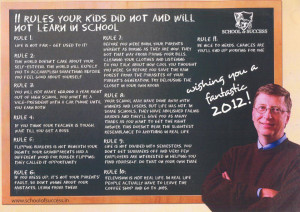 11 RULES YOUR KIDS DID NOT AND WILL
NOT LEARN IN SCHOOL
RULE 1:
LIFE IS NOT FAIR - GET USED TO IT!
RULE 2:
THE WORLD DOESN'T CARE ABOUT YOUR
SELF-ESTEEM. THE WORLD WILL EXPECT
YOU TO ACCOMPLISH SOMETHING BEFORE
YOU FEEL GOOD ABOUT YOURSELF
RULE 3:
YOU WILL NOT MAKE $60,000 A YEAR RIGHT
OUT OF HIGH SCHOOL. YOU WON'T BE A
VICE-PRESIDENT WITH A CAR PHONE UNTIL
YOU EARN BOTH
RULE 4:
IF YOU THINK YOUR TEACHER IS TOUGH,
WAIT TILL YOU GET A BOSS
RULE 5:
FLIPPING BURGERS IS NOT BENEATH YOUR
DIGNITY. YOUR GRANDPARENTS HAD A
DIFFERENT WORD FOR BURGER FLIPPING:
THEY CALLED IT OPPORTUNITY.
RULE 6:
IF YOU MESS UP, IT'S NOT YOUR PARENTS'
FAULT, SO DON'T WHINE ABOUT YOUR
MISTAKES, LEARN FROM THEM.
RULE 7:
BEFORE YOU WERE BORN, YOUR PARENTS
WEREN'T AS BORING AS THEY ARE NOW. THEY
GOT THAT WAY FROM PAYING YOUR BILLS,
CLEANING YOUR CLOTHES AND LISTENING
TO YOU TALK ABOUT HOW COOL YOU THOUGHT
YOU WERE. SO BEFORE YOU SAVE THE RAIN
FOREST FROM THE PARASITES OF YOUR
PARENT'S GENERATION, TRY DELOUSING THE
CLOSET IN YOUR OWN ROOM
RULE 8:
YOUR SCHOOL MAY HAVE DONE AWAY WITH
WINNERS AND LOSERS, BUT LIFE HAS NOT. IN
SOME SCHOOLS, THEY HAVE ABOLISHED FAILING
GRADES AND THEY'LL GIVE YOU AS MANY
TIMES AS YOU WANT TO GET THE RIGHT
ANSWER. THIS DOESN'T BEAR THE SLIGHTEST
RESEMBLANCE TO ANYTHING IN REAL LIFE
RULE 9:
LIFE IS NOT DIVIDED INTO SEMESTERS. YOU
DON'T GET SUMMERS OFF AND VERY FEW
EMPLOYERS ARE INTERESTED IN HELPING YOU
FIND YOURSELF. DO THAT ON YOUR OWN TIME
RULE 10:
TELEVISION IS NOT REAL LIFE. IN REAL LIFE
PEOPLE ACTUALLY HAVE TO LEAVE THE
COFFEE SHOP AND GO TO JOBS
RULE 11:
BE NICE TO NERDS. CHANCES ARE
YOU'LL END UP WORKING FOR ONE
SCHOOL SUCCESS
wishing you a
fantastic
2012!
www.schoolofsuccess.in